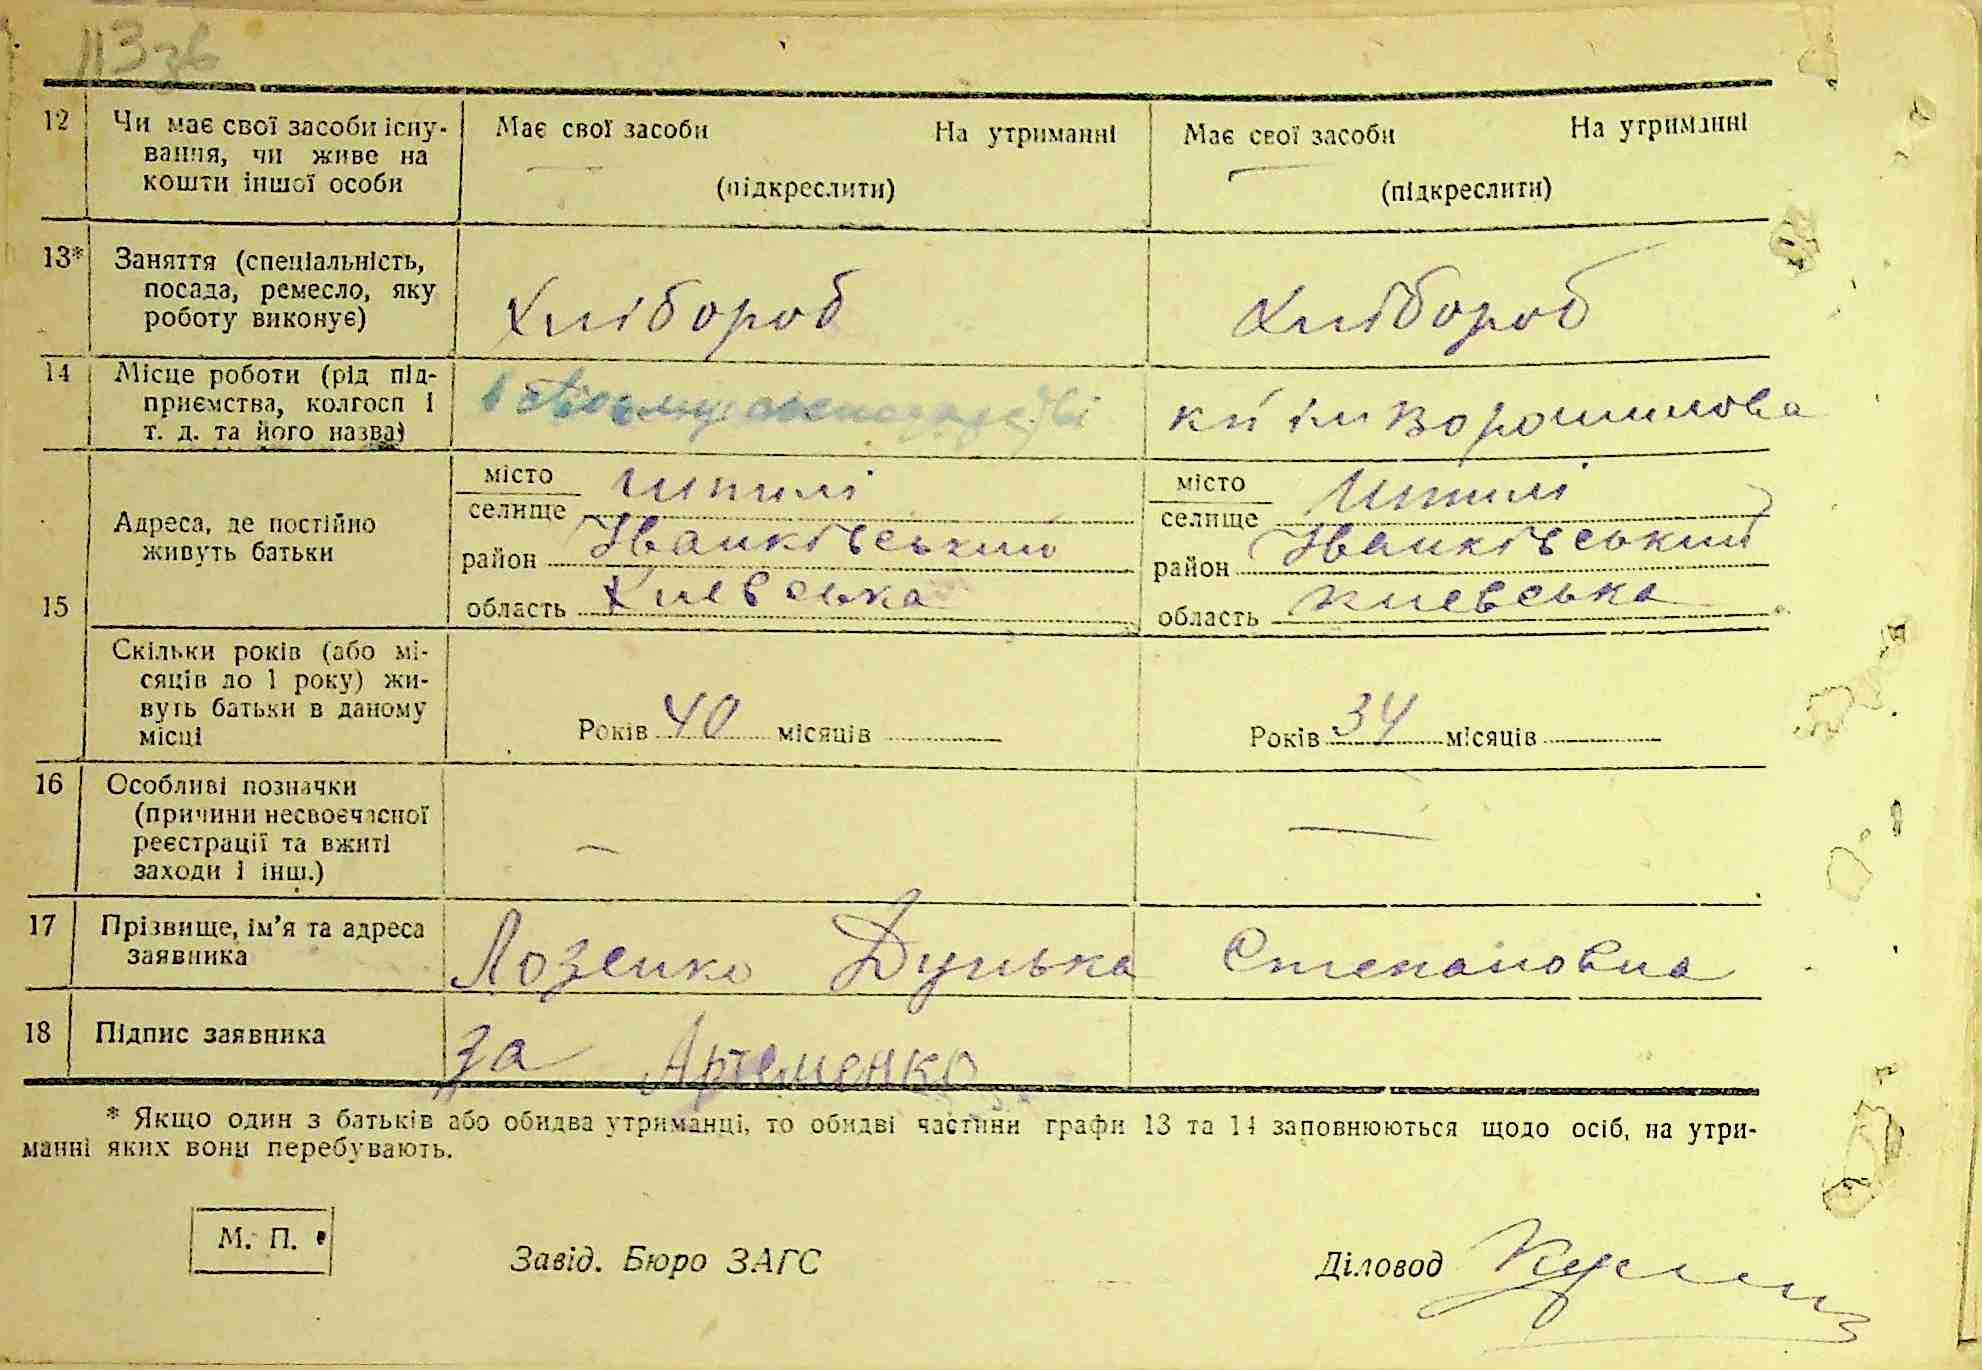 113 зв
12 Чи має свої засоби існу-
вання, чи живе на
кошти іншої особи
Має свої засоби На утриманні
(підкреслити)
Має свої засоби На утриманні
(підкреслити)
13* Заняття (спеціальність,
посада, ремесло, яку
роботу виконує)
Хлібороб
Хлібороб
14 Місце роботи (рід під-
приємства, колгосп і
т. д. та його назва)
в своєму господарстві
кп ім Ворошилова
15
Адреса, де постійно
живуть батьки
місто
селище Шпилі
район Іванківський
область Киевська
місто
селище Шпилі
район Іванківський
область Киевська
Скільки років (або мі-
сяців до 1 року) жи-
вуть батьки в даному
місці
Років 40 місяців
Років 34 місяців
16 Особливі позначки
(причини несвоєчасної
реєстрації та вжиті
заходи і інш.)
—
—
17 Прізвище, ім'я та адреса
заявника
Лозенко Дунька Степановна
18 Підпис заявника
За Артеменко
* Якщо один з батьків або обидва утриманці, то обидві частини графи 13 та 14 заповнюються щодо осіб, на утри-
манні яких вони перебувають.
М. П.
Завід. Бюро ЗАГС
Діловод